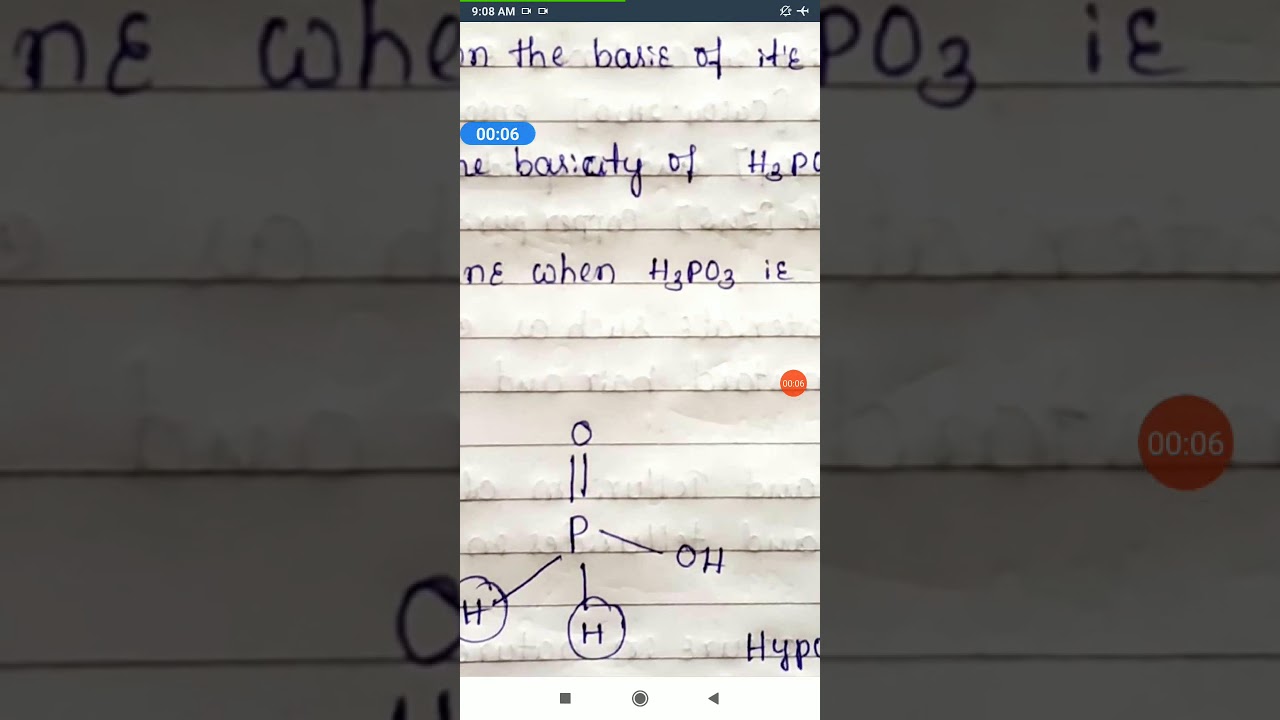 9:08 AM
on the basis of it's
00:06
he basicity of H₃PO
ns when H₃PO₃ is
00:06
O
P
OH
H
H
Hypo
PO₃ is
ns whe
00:06